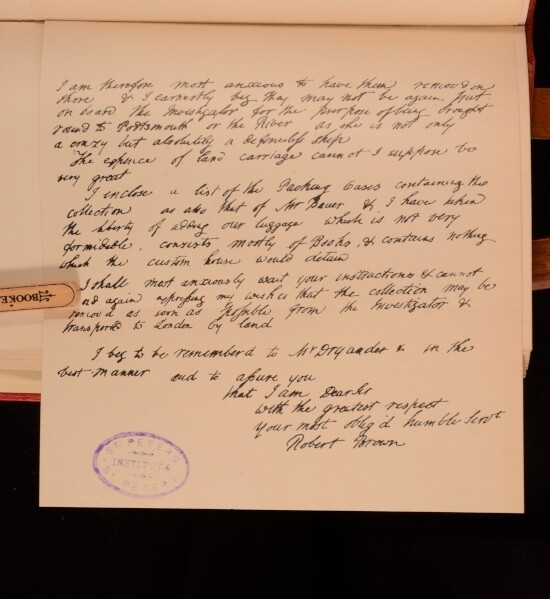 I am therefore most anxious to have them removed on
shore & I earnestly beg they may not be again put
on board the Investigator for the purpose of being brought
round to Portsmouth or the River as she is not only
a crazy but absolutely a defenceless ship
The expence of land carriage cannot I suppose be
very great
I inclose a list of the Packing Cases containing the
collection as also that of Mr Bauer & I have taken
the liberty of adding our luggage which is not very
formidable, consists mostly of Books, & contains nothing
which the custom house would detain
I shall most anxiously wait your instructions & cannot
end again expressing my wishes that the collection may be
removed as soon as possible from the Investigator &
transported to London by land
I beg to be rememberd to Mr Dryander & in the
best manner and to assure you
that I am Dear Sir
with the greatest respect
your most oblig'd humble Servt
Robert Brown
ST. PETERS
INSTITUTE
ST. PETERS
BOOKE